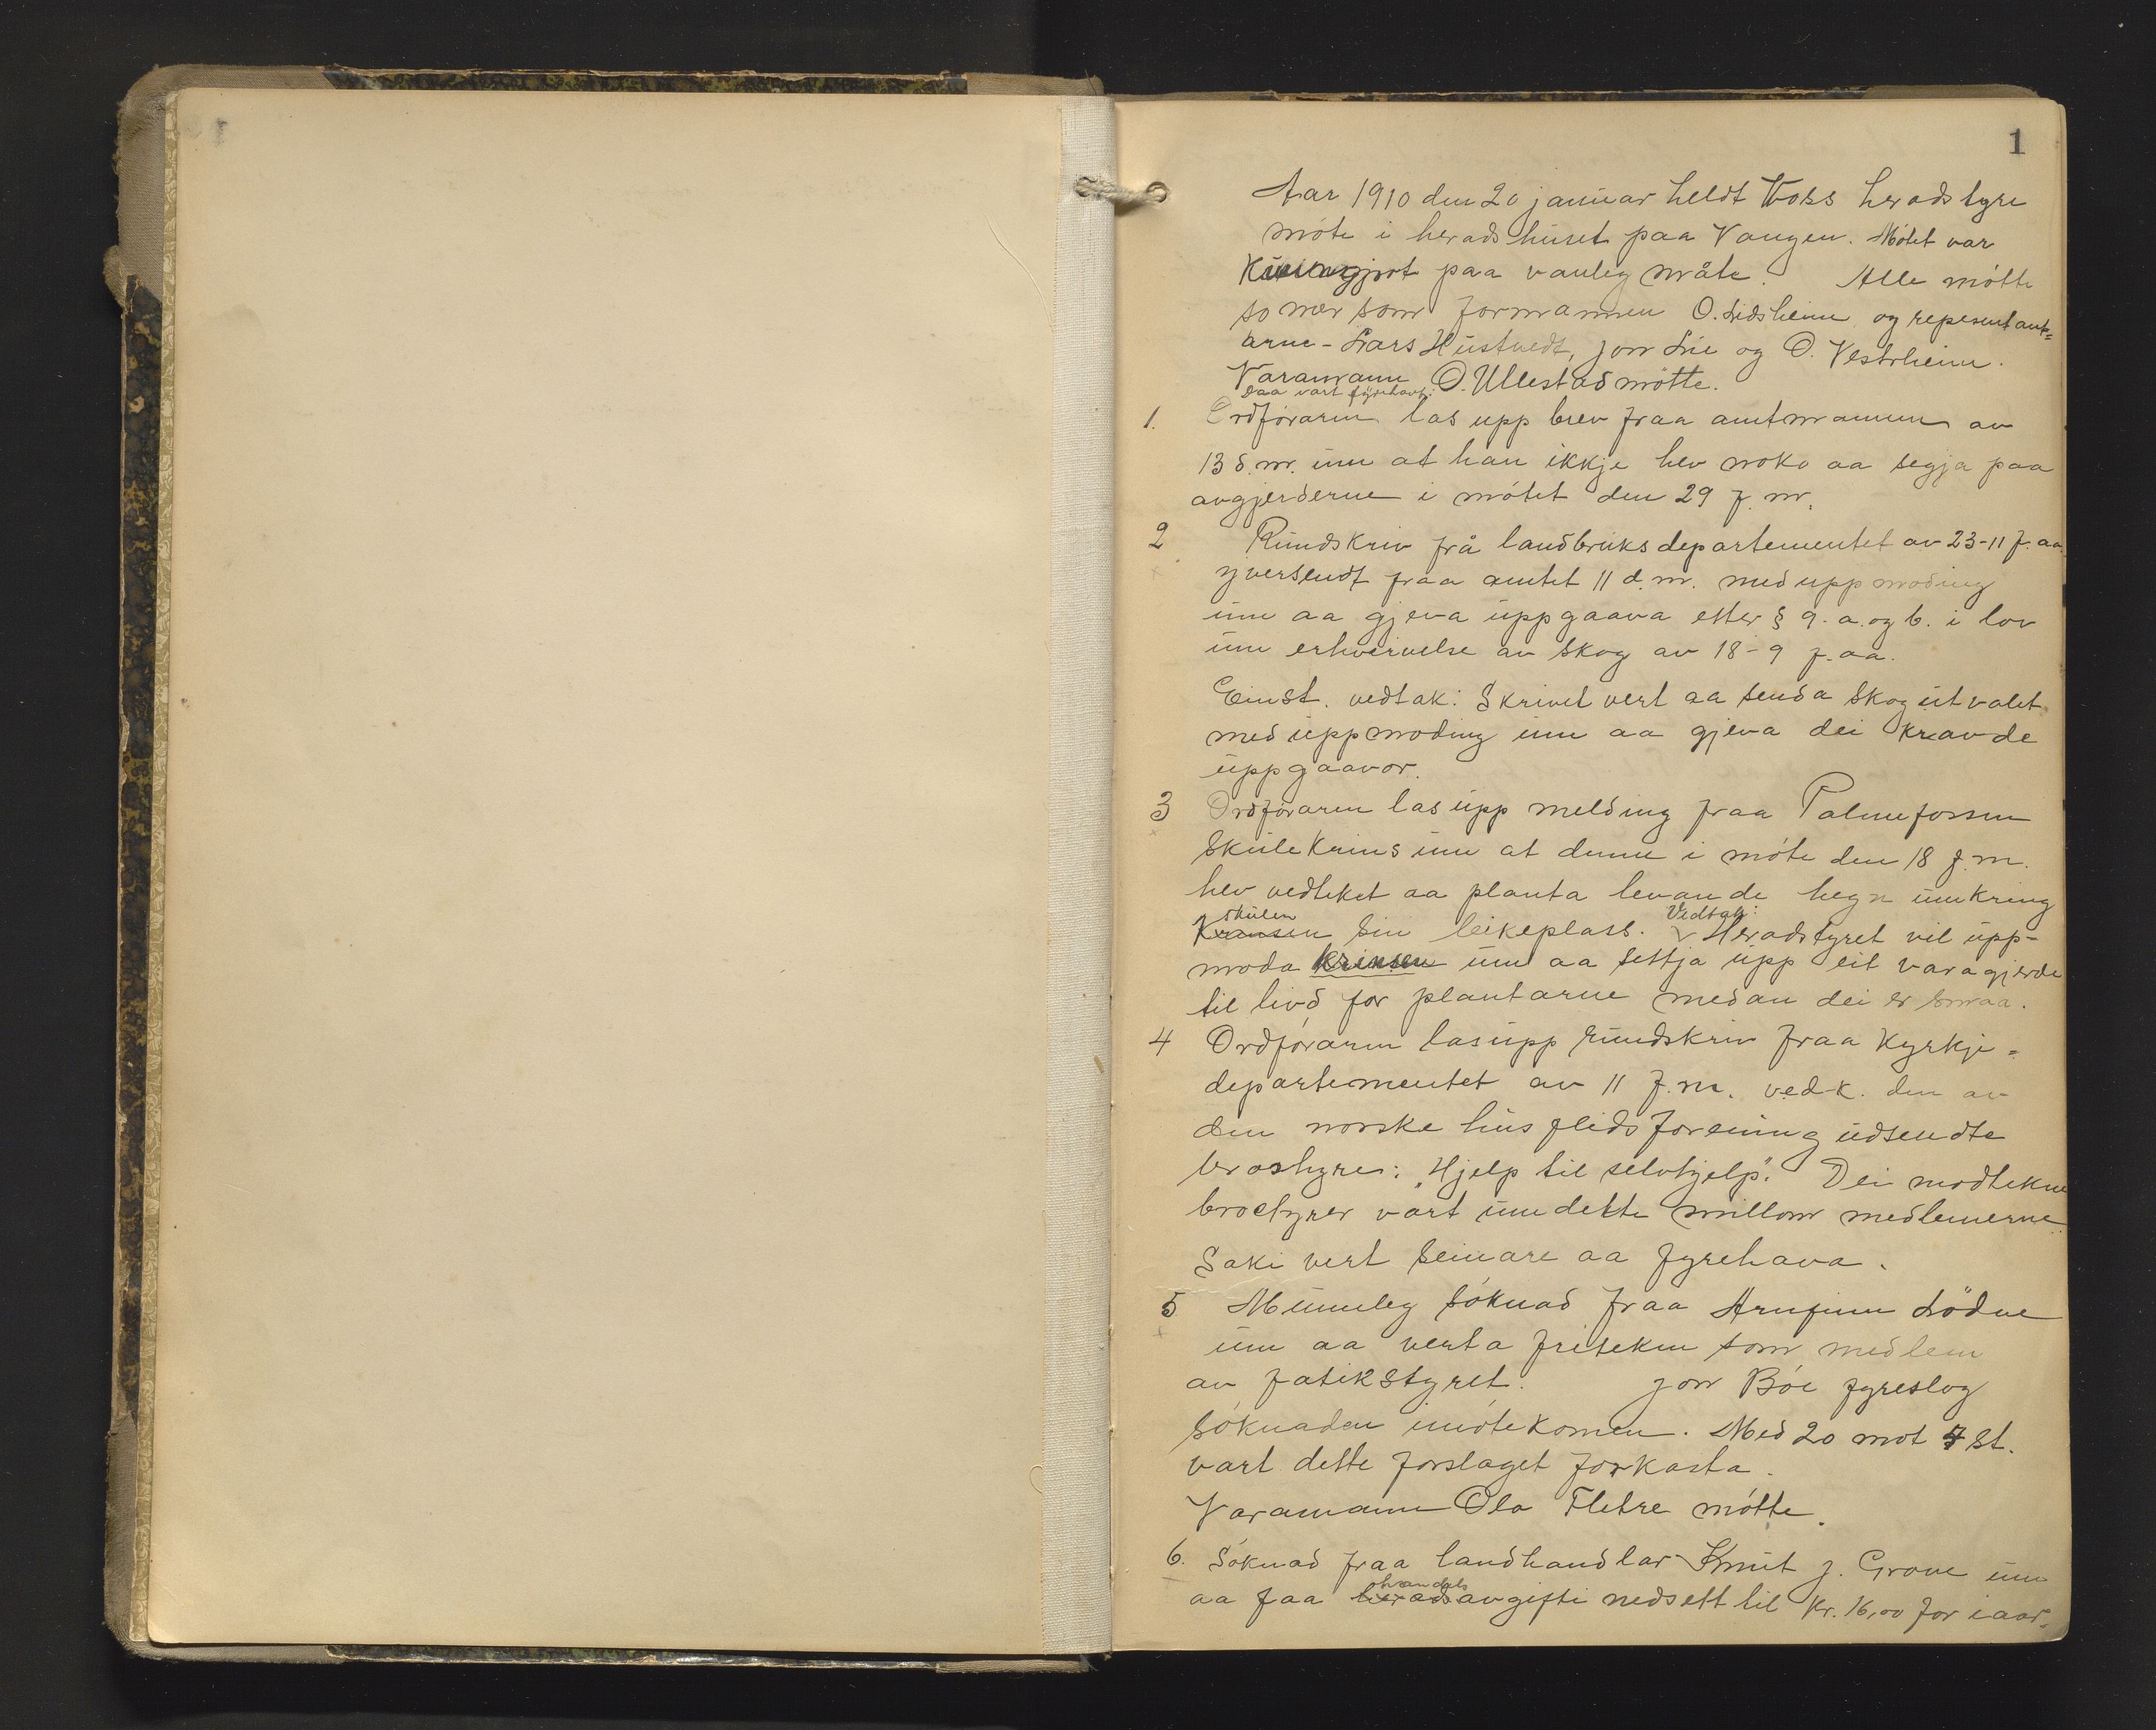 1
Aar 1910 den 20 januar heldt Voss heradstyre
møte i heradshuset paa Vangen. Møtet var
kunngjort paa vanleg måte. Alle møtte
so nær som formannen O. Lidsheim og repesentant=
arne - Lars Hustvedt, Jon Lie og O. Vestrheim.
Varamann O. Ullestad møtte.
Daa vart fyrehavt:
1. Ordføraren las upp brev fraa amtmannen av
13 d.m. um at han ikkje hev noko aa segja paa
avgjerderne i møtet den 29 f. m.
2 Rundskriv frå landbruksdepartementet av 23-11 f. aa.
yversendt fraa amtet 11 d.m. med uppmoding
um aa gjeva uppgaava etter § 9. a. og b. i lov
um erhvervelse av skog av 18-9 f. aa.
Einst. vedtak: Skrivet vert aa senda skogutvalet
med uppmoding um aa gjeva dei kravde
uppgaavor.
3 Ordføraren las upp melding fraa Palmefossen
skulekrins um at denne i møte den 18 f.m.
hev vedteket aa planta levande hegn umkring
skulen Vedtak:
Kransen sin leikeplass. Heradstyret vil upp-
moda krinsen um aa settja upp eit varagjerde
til livd for plantarne medan dei er smaa.
4 Ordføraren las upp rundskriv fraa Kyrkje=
departementet av 11 f.m. ved-k. den av
den norske husflidsforening udsendte
broshyre: "Hjelp til selvhjelp". Dei modtekne
brochyrer vart umdelte millom medlemerne.
Saki vert seinare aa fyrehava.
5 Munnleg søknad fraa Arnfinn Lødve
um aa verta friteken som medlem
av fatikstyret. Jon Bøe fyreslog
søknaden imøtekomen. Med 20 mot 7 st.
vart dette forslaget forkasta.
Varamann Ola Fletre møtte.
6. Søknad fraa landhandlar Knut J. Grove um
handels
aa faa heradsavgifti nedsett til kr. 16,00 for iaar.